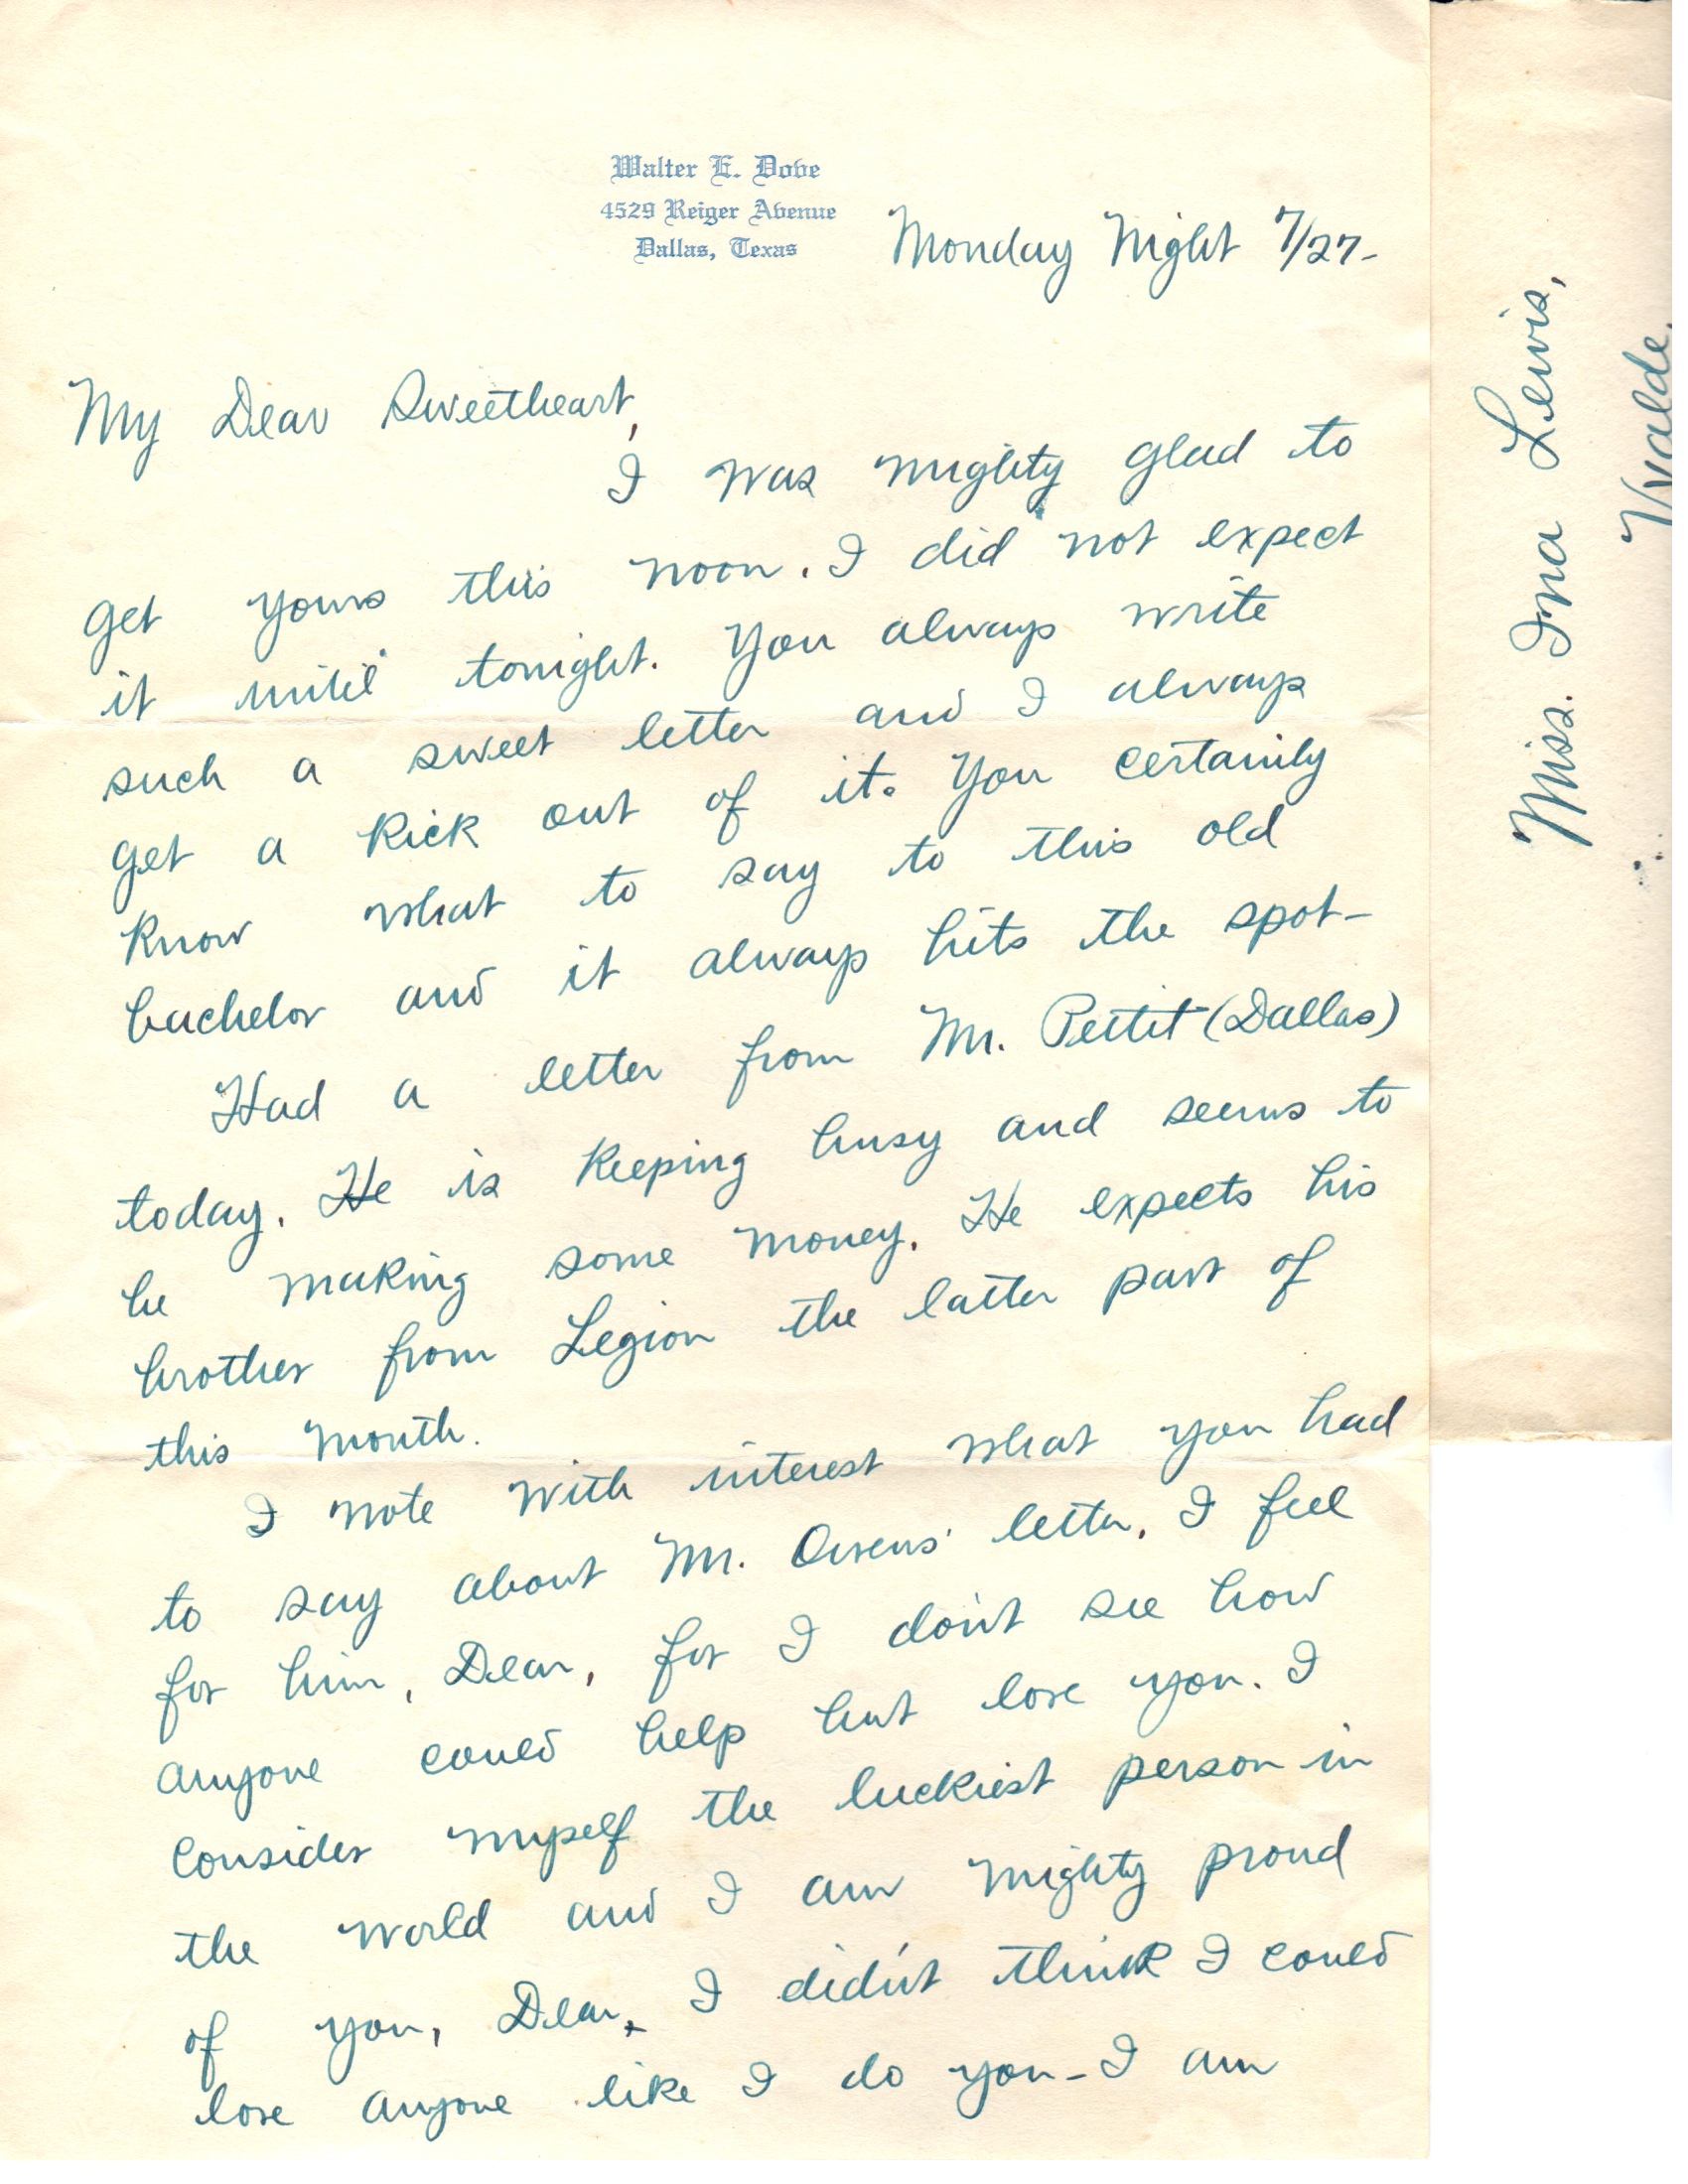 Walter E. Dove
4529 Reiger Avenue
Dallas, Texas
Monday Night 7/27-
My Dear Sweetheart,
I was mighty glad to
get yours this noon. I did not expect
it until tonight. You always write
such a sweet letter and I always
get a kick out of it. You certainly
know what to say to this old
bachelor and it always hits the spot-
Had a letter from Mr. Pettit (Dallas)
today. He is keeping busy and seems to
be making some money. He expects his
brother from Legion the latter part of
this month.
I note with interest what you had
to say about Mr. Owens' letter. I feel
for him, Dear, for I don't see how
anyone could help but love you. I
consider myself the luckiest person in
the world and I am mighty proud
of you, Dear. I didn't think I could
love anyone like I do you - I am
Miss. Ina Lewis,
Uvalde,